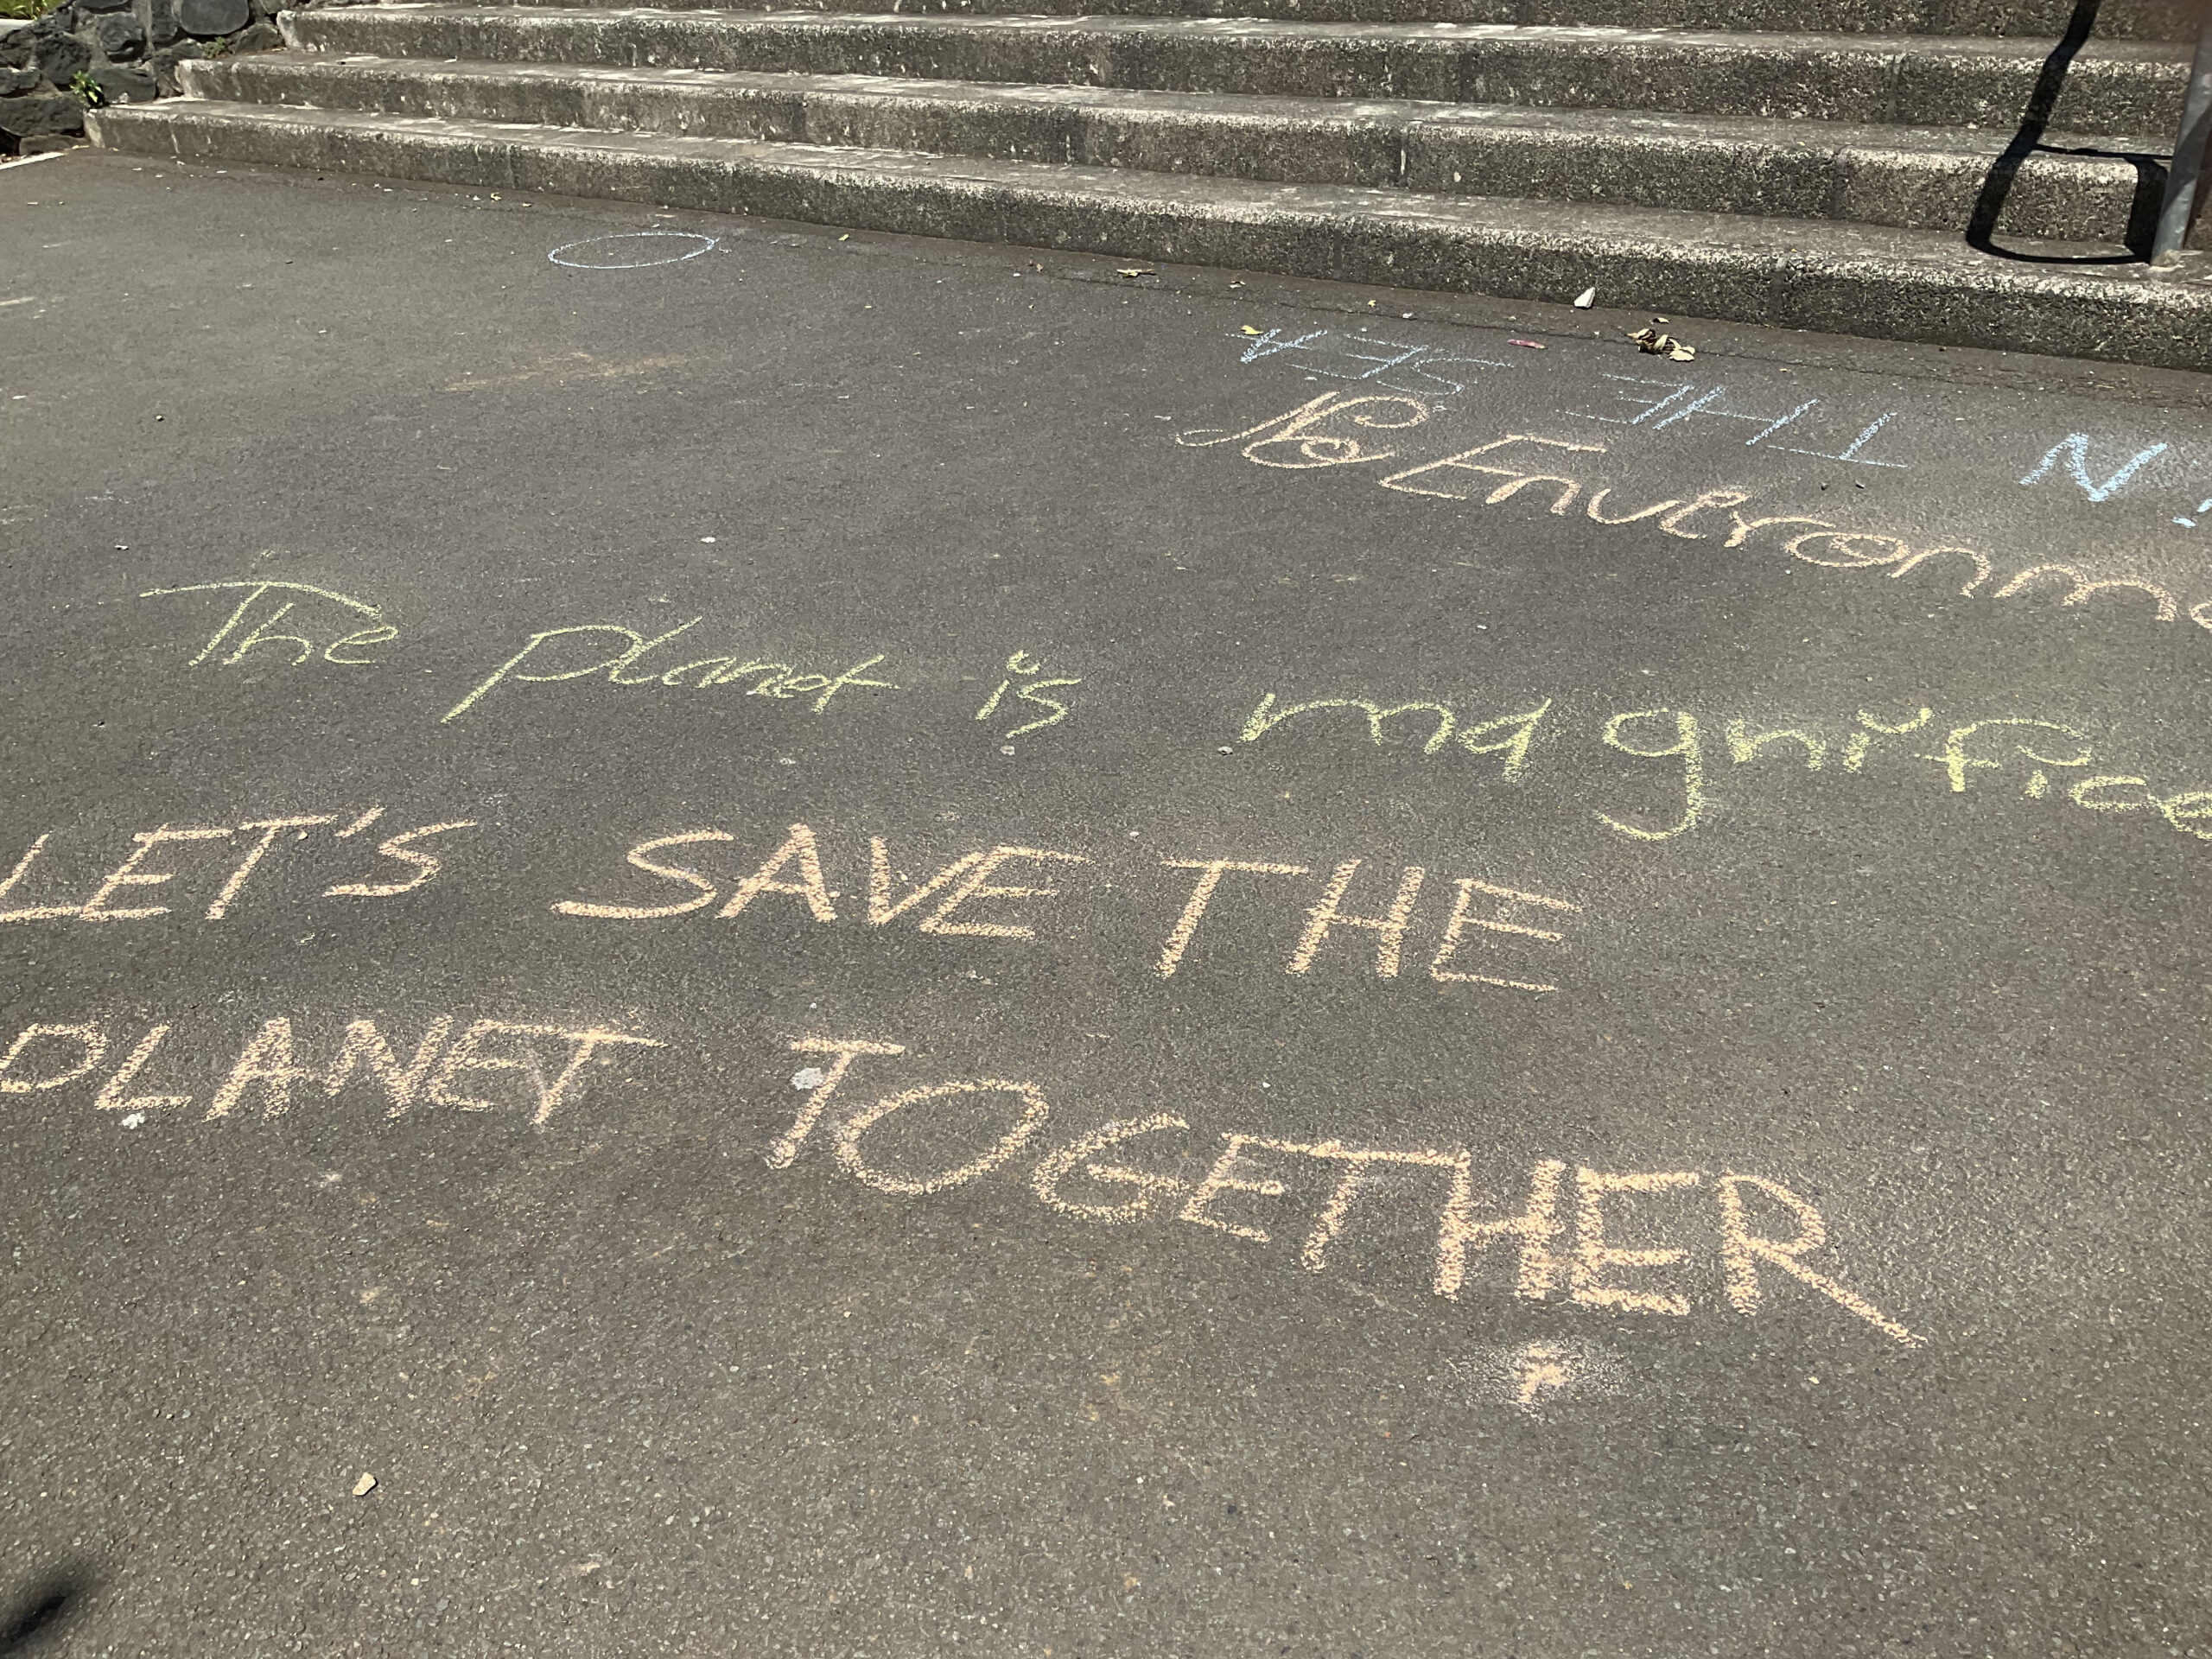 N THE SEA
No Environme
The planet is magnifice
LET'S SAVE THE
PLANET TOGETHER